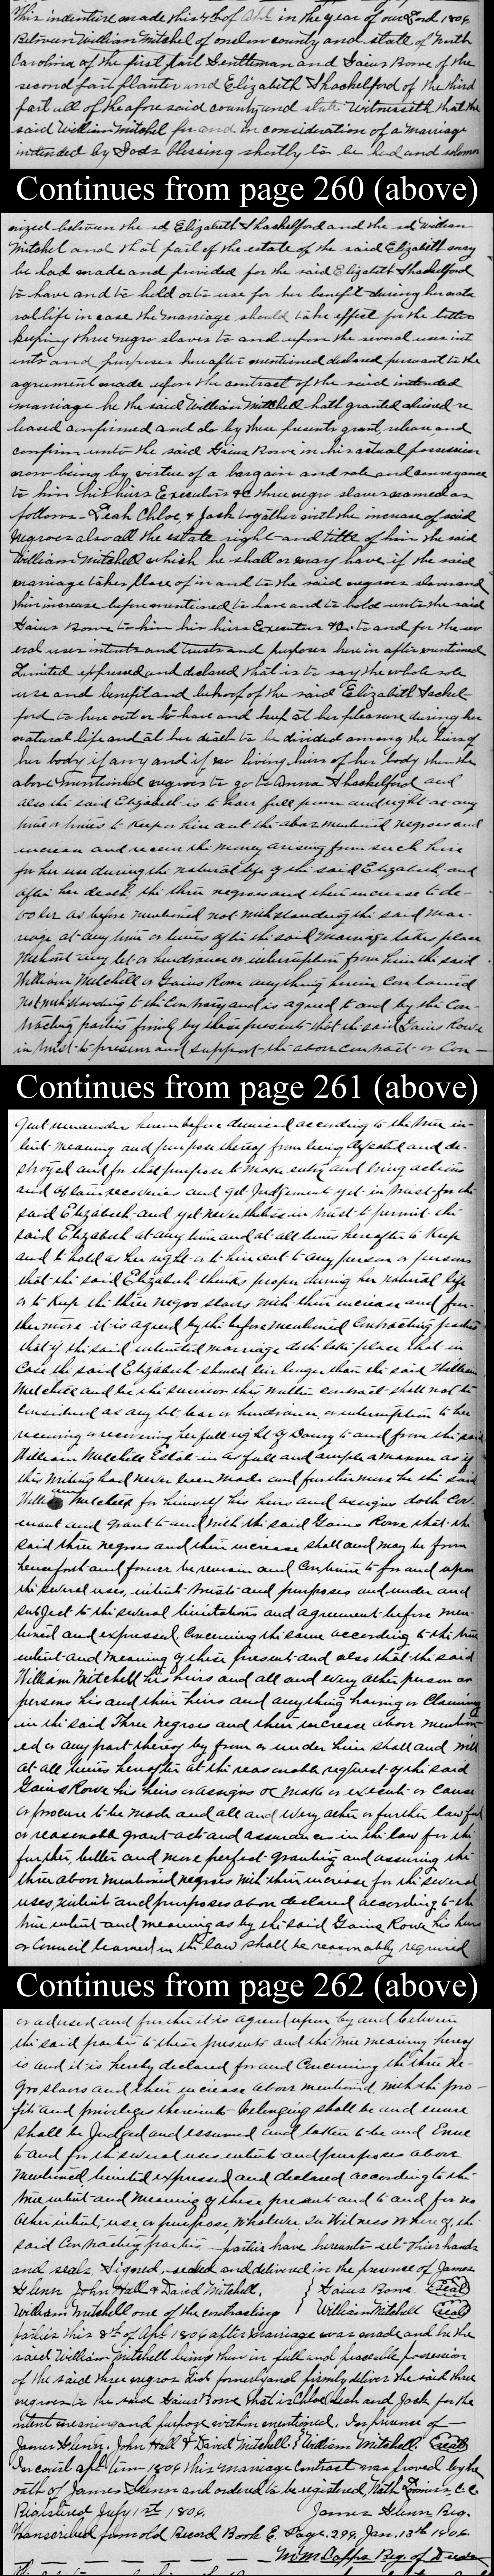 This indenture made this 4th of Apl in the year of our Lord 1806
Between William Mitchel of onslow county and state of North
Carolina of the first part Gentleman and Gaius Rowe of the
second part planter and Elizabeth Shackelford of the third
part all of the afore said county and state Witnesseth that the
said William Mitchel for and in consideration of a marriage
intended by Gods blessing shortly to be had and solem
Continues from page 260 (above)
nized between the sd Elizabeth Shackelford and the sd William
Mitchel and that part of the estate of the said Elizabeth may
be had made and provided for the said Elizabeth Shackelford
to have and to hold or to use for her benefit during her natu
ral life in case the marriage should take effect for the better
keeping three negro slaves to and upon the several uses int
ents and purposes hereafter mentioned declared pursuant to the
agreement made upon the contract of the said intended
marriage he the said William Mitchell hath granted aliened re
leased confirmed and do by these presents grant, release and
confirm unto the said Gaius Rowe in his actual possession
now being by virtue of a bargain and sale and conveyance
to him his heirs Executors &c three negro slaves named as
follows - Leah Chloe, & Jack together with the increase of said
negroes also all the estate right and title of him the said
William Mitchell which he shall or may have if the said
marriage takes place of in and to the said negroes slaves and
their increase before mentioned to have and to hold unto the said
Gaius Rowe to him his heirs Executors &c. to and for the sev
eral uses intents and trusts and purposes here in after mentioned
Limited expressed and declared that is to say the whole sole
use and benefit and behoof of the said Elizabeth Shackel
ford to hire out or to have and keep at her pleasure during her
natural life and at her death to be divided among the heirs of
her body if any and if no living heirs of her body then the
above mentioned negroes to go to Anna Shackelford and
also the said Elizabeth is to have full power and right at any
time or times to keep or hire out the above mentioned negroes and
increase and receive the money arising from such hire
for her use during the natural life of the said Elizabeth, and
after her death, the three negroes and their increase to de-
volve as before mentioned not withstanding the said mar-
riage at any time or times after the said marriage takes place
without any let or hindrance or interruption from him the said
William Mitchell or Gaius Rowe anything herein contained
notwithstanding to the contrary and is agreed to and by the con
tracting parties firmly by these presents that the said Gaius Rowe
in trust to preserve and support the above contract or Con-
Continues from page 261 (above)
gent remainder herein before demised according to the true in-
tent meaning and purpose thereof from being defeated and de-
stroyed and for that purpose to make entry and bring actions
and obtain recoveries and get Judgement yet in trust for the
said Elizabeth and yet nevertheless in trust to permit the
said Elizabeth at any time and at all times hereafter to keep
and to hold as her right or to hire out to any person or persons
that the said Elizabeth thinks proper during her natural life
or to keep the three negro slaves with their increase and fur-
thermore it is agreed by the before mentioned Contracting parties
that if the said intended marriage doth take place that in
case the said Elizabeth should live longer than the said William
Mitchell and be the survivor this written contract shall not be
considered as any let bar or hindrance, or interruption to her
receiving or recovering her full right of Dowry to and from the said
William Mitchell Estate in as full and ample a manner as if
this writing had never been made and furthermore he the said
William Mitchell for himself his heirs and assigns doth cov-
enant and grant to and with the said Gaius Rowe that the
said three negroes and their increase shall and may be from
henceforth and forever be remain and continue to for and upon
the several uses, intents trusts and purposes and under and
subject to the several limitations and agreement before men-
tioned and expressed, Concerning the same according to the true
intent and meaning of these present and also that the said
William Mitchell his heirs and all and every other person or
persons his and their heirs and anything having or Claiming
in the said Three Negroes and their increase above mention
ed or any part thereof by from or under him shall and will
at all times hereafter at the reasonable request of the said
Gaius Rowe his heirs or assigns &c make or execute or cause
or procure to be made and all and every other or further lawful
or reasonable grant acts and assurances in the law for the
further, better and more perfect granting and assuring the
three above mentioned negroes with their increase for the several
uses, intent and purposes above declared according to the
true intent and meaning as by the said Gaius Rowe his heirs
or Council learned in the law shall be reasonably required
Continues from page 262 (above)
or advised and further it is agreed upon by and between
the said parties to these presents and the true meaning hereof
is and it is hereby declared for and Concerning the three Ne-
gro slaves and their increase above mentioned with the pro-
fits and privileges thereunto belonging shall be and enure
shall be Judged and assumed and taken to be and Enue
to and for the several uses intents and purposes above
mentioned limited expressed and declared according to the
true intent and meaning of these present and to and for no
other intent, use, or purpose whatever In Witness Where of the
said Contracting parties parties have hereunto set their hands
and seals. Signed, sealed and delivered in the presence of James
Glenn John Hall & David Mitchell, } Gaius Rowe. (Seal)
William Mitchell one of the contracting William Mitchell (Seal)
parties this 8th of Apl. 1806 after marriage was made and he the
said William Mitchell being then in full and peaceable possession
of the said three negroes Did formerly and firmly deliver the said three
negroes to the said Gaius Rowe that is Chloe Leah and Jack for the
intent meaning and purpose within mentioned. In presence of
James Glenn. John Hall & David Mitchell. } William Mitchell. (Seal)
In court apl term 1806 this marriage contract was proved by the
oath of James Glenn and ordered to be registered, Nath C. C.
Registered July 1st, 1806. James Glenn Reg.
Transcribed from old Record Book E. Page. 299, Jan. 13th 1906.
Wm Capps Reg. of Deeds